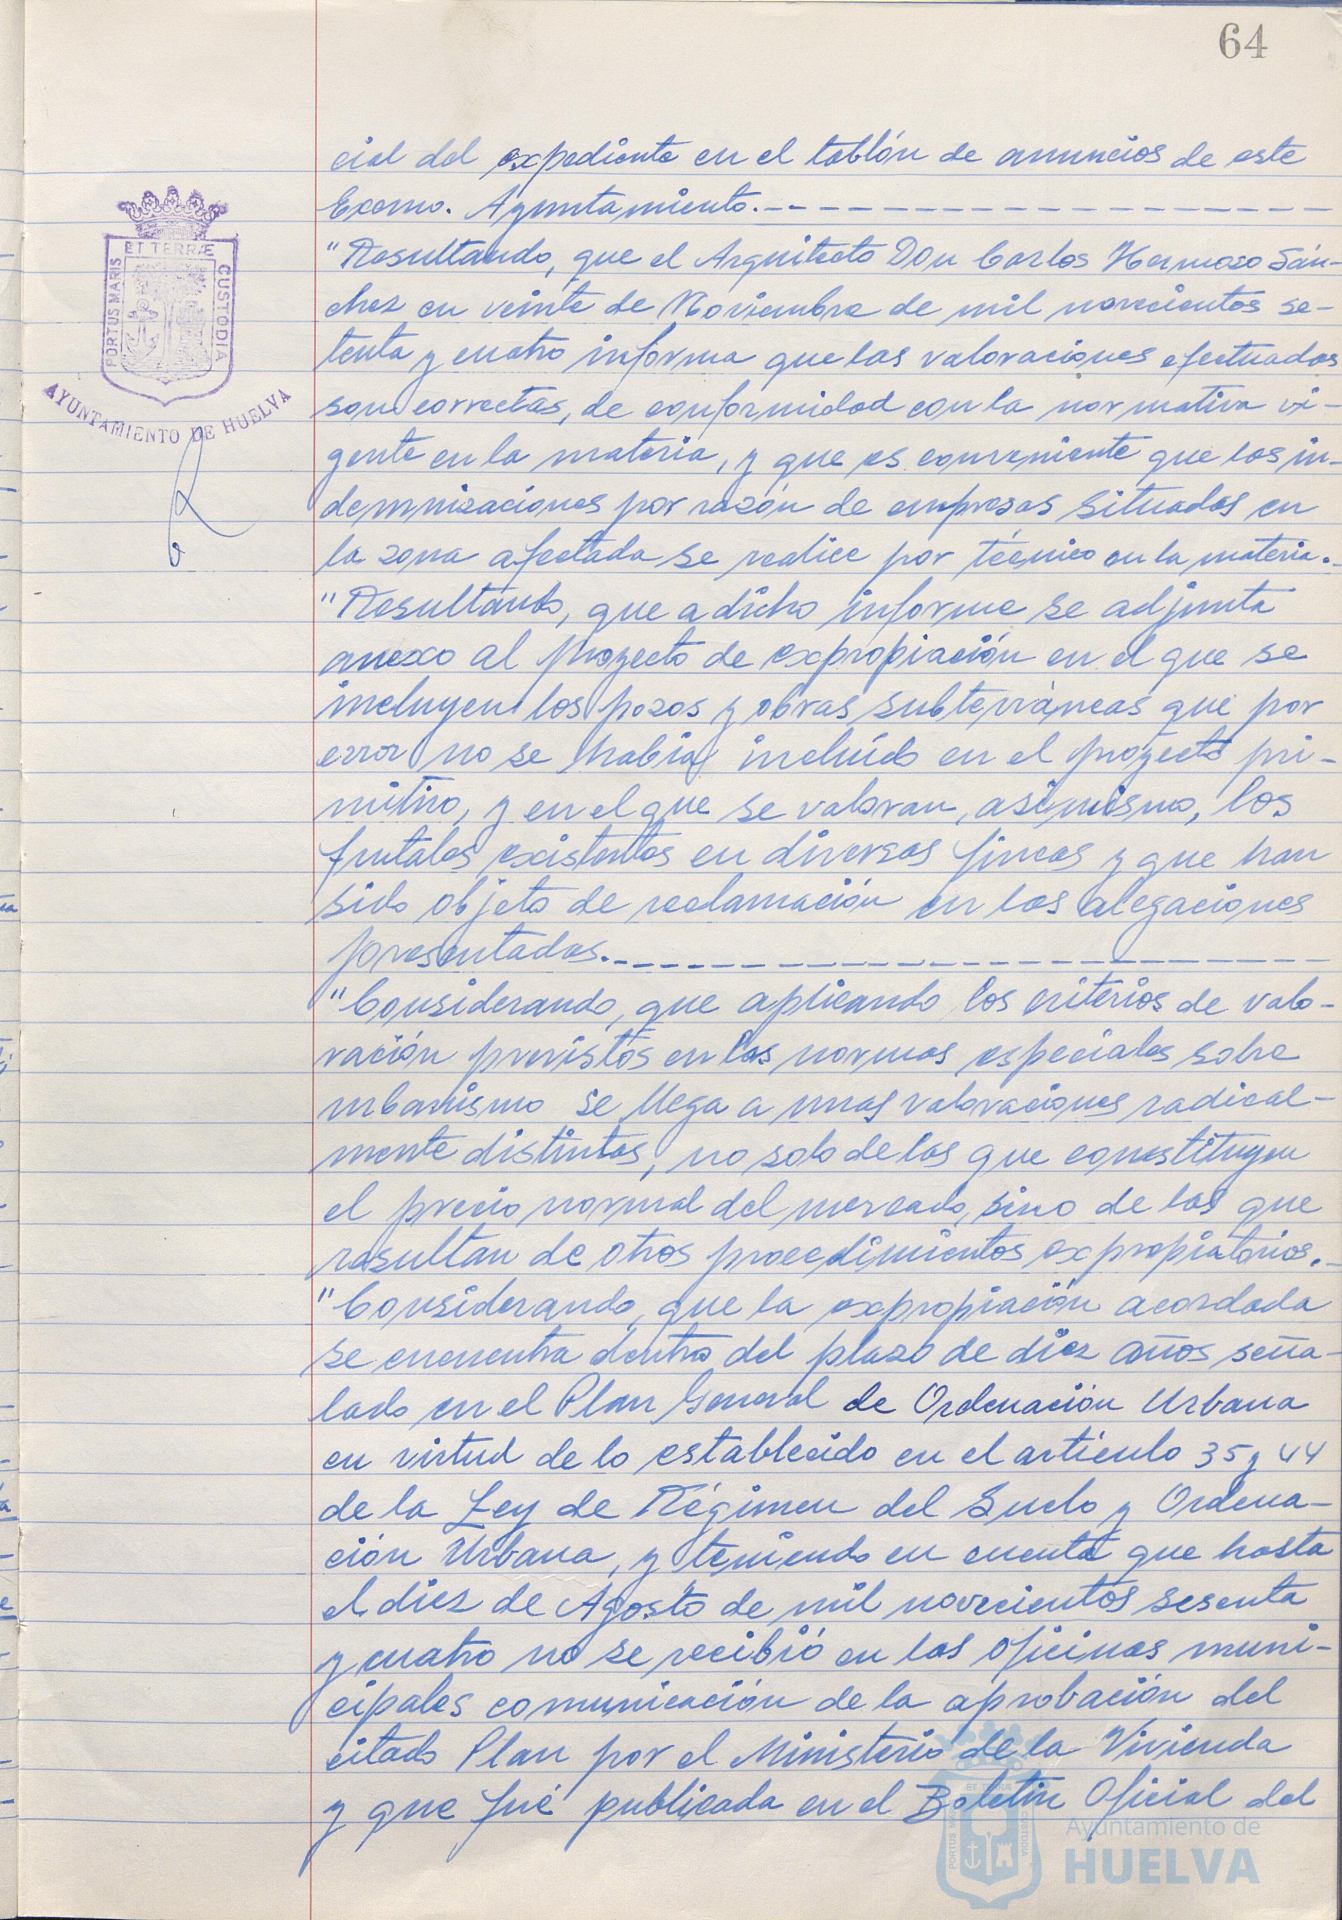 64
cial del expediente en el tablón de anuncios de este
Excmo. Ayuntamiento.
"Resultando, que el Arquitecto Don Carlos Hermoso Sán-
chez en veinte de Noviembre de mil novecientos se-
tenta y cuatro informa que las valoraciones efectuadas
son correctas, de conformidad con la normativa vi-
gente en la materia, y que es conveniente que las in-
demnizaciones por razón de empresas situadas en
la zona afectada se realice por técnico en la materia.
"Resultando, que a dicho informe se adjunta
anexo al proyecto de expropiación en el que se
incluyen los pozos y obras subterráneas que por
error no se había incluído en el proyecto pri-
mitivo, y en el que se valoran, asimismo, los
frutales existentes en diversas fincas y que han
sido objeto de reclamación en las alegaciones
presentadas.
"Considerando, que aplicando los criterios de valo-
ración previstos en las normas especiales sobre
urbanismo se llega a unas valoraciones radical-
mente distintas, no solo de las que constituyen
el precio normal del mercado, sino de las que
resultan de otros procedimientos expropiatorios.
"Considerando, que la expropiación acordada
se encuentra dentro del plazo de diez años seña-
lado en el Plan General de Ordenación Urbana
en virtud de lo establecido en el artículo 35 y 44
de la Ley de Régimen del Suelo y Ordena-
ción Urbana, y teniendo en cuenta que hasta
el diez de Agosto de mil novecientos sesenta
y cuatro no se recibió en las oficinas muni-
cipales comunicación de la aprobación del
citado Plan por el Ministerio de la Vivienda
y que fué publicada en el Boletín Oficial del
PORTUS MARIS
ET TERRÆ
CUSTODIA
AYUNTAMIENTO DE HUELVA
Ayuntamiento de
HUELVA